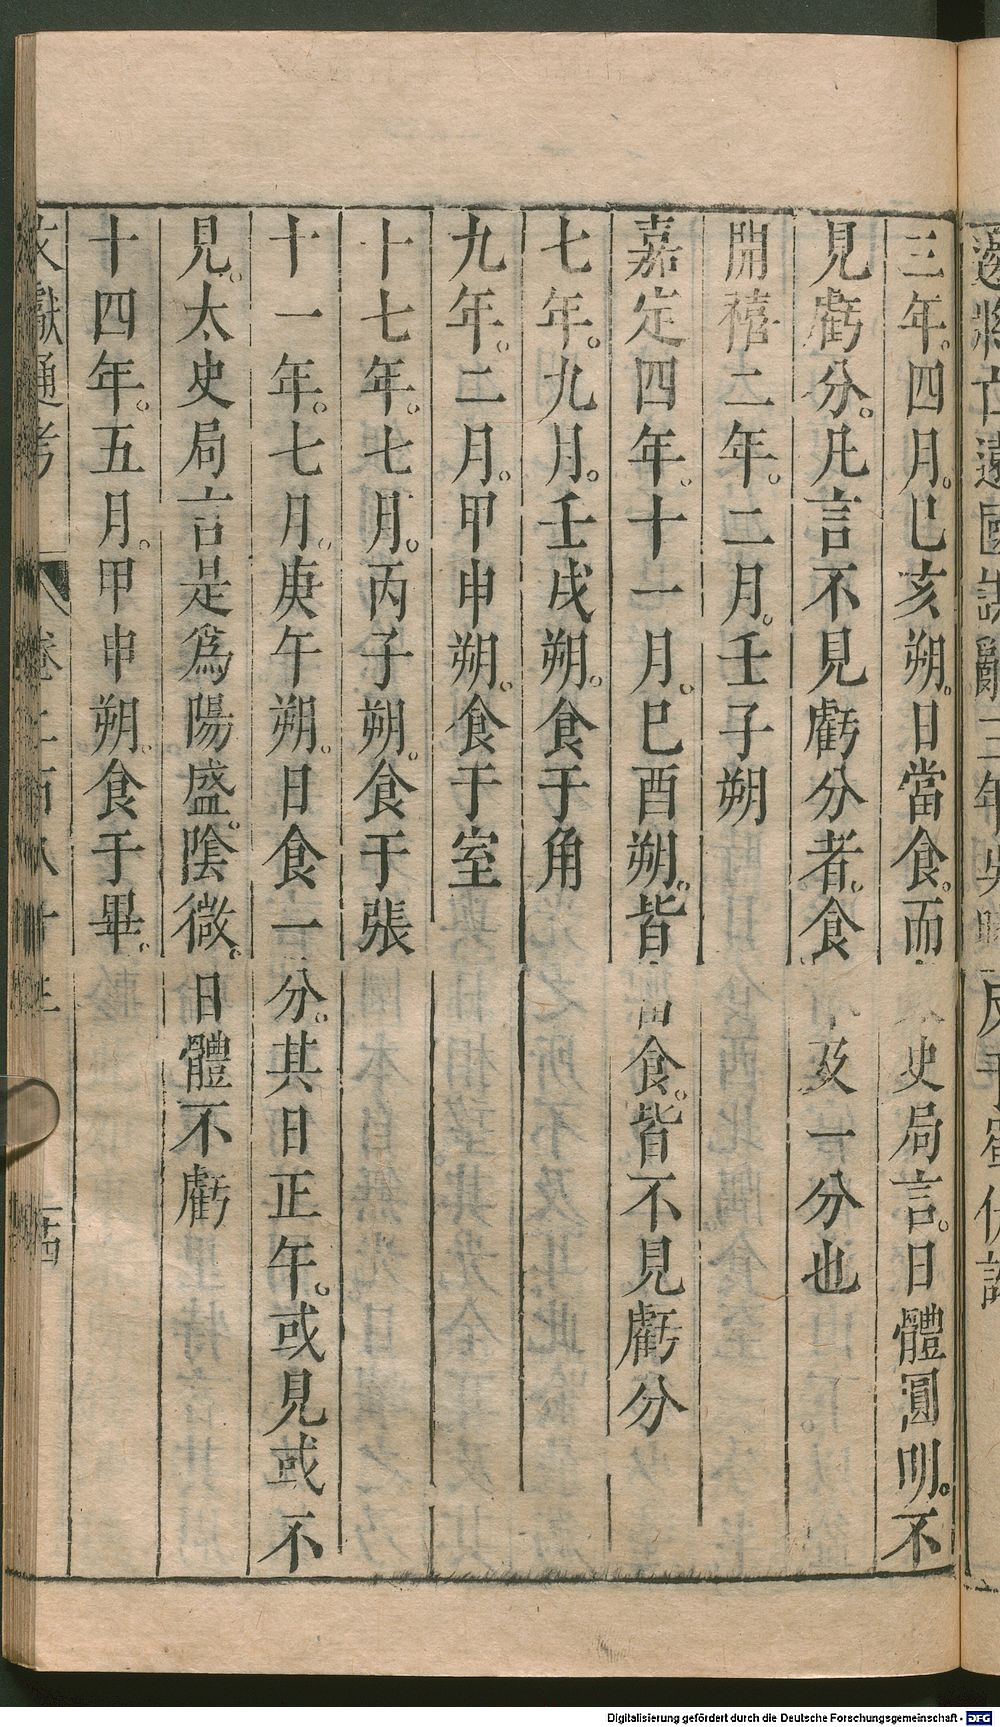 三年。四月。巳亥朔。日當食。而太史局言。日體圓明。不
見虧分。凡言不見虧分者。食不及一分也
開禧二年。二月。壬子朔
嘉定四年。十一月。巳酉朔。皆當食。皆不見虧分
七年。九月。壬戌朔。食于角
九年。二月。甲申朔。食于室
十七年。七月。丙子朔。食于張
十一年。七月。庚午朔。日食一分。其日正午。或見或不
見。太史局言是爲陽盛。陰微。日體不虧
十四年。五月。甲申朔。食于畢。
文獻通考 卷二百八十三 二十四
Digitalisierung gefördert durch die Deutsche Forschungsgemeinschaft - DFG